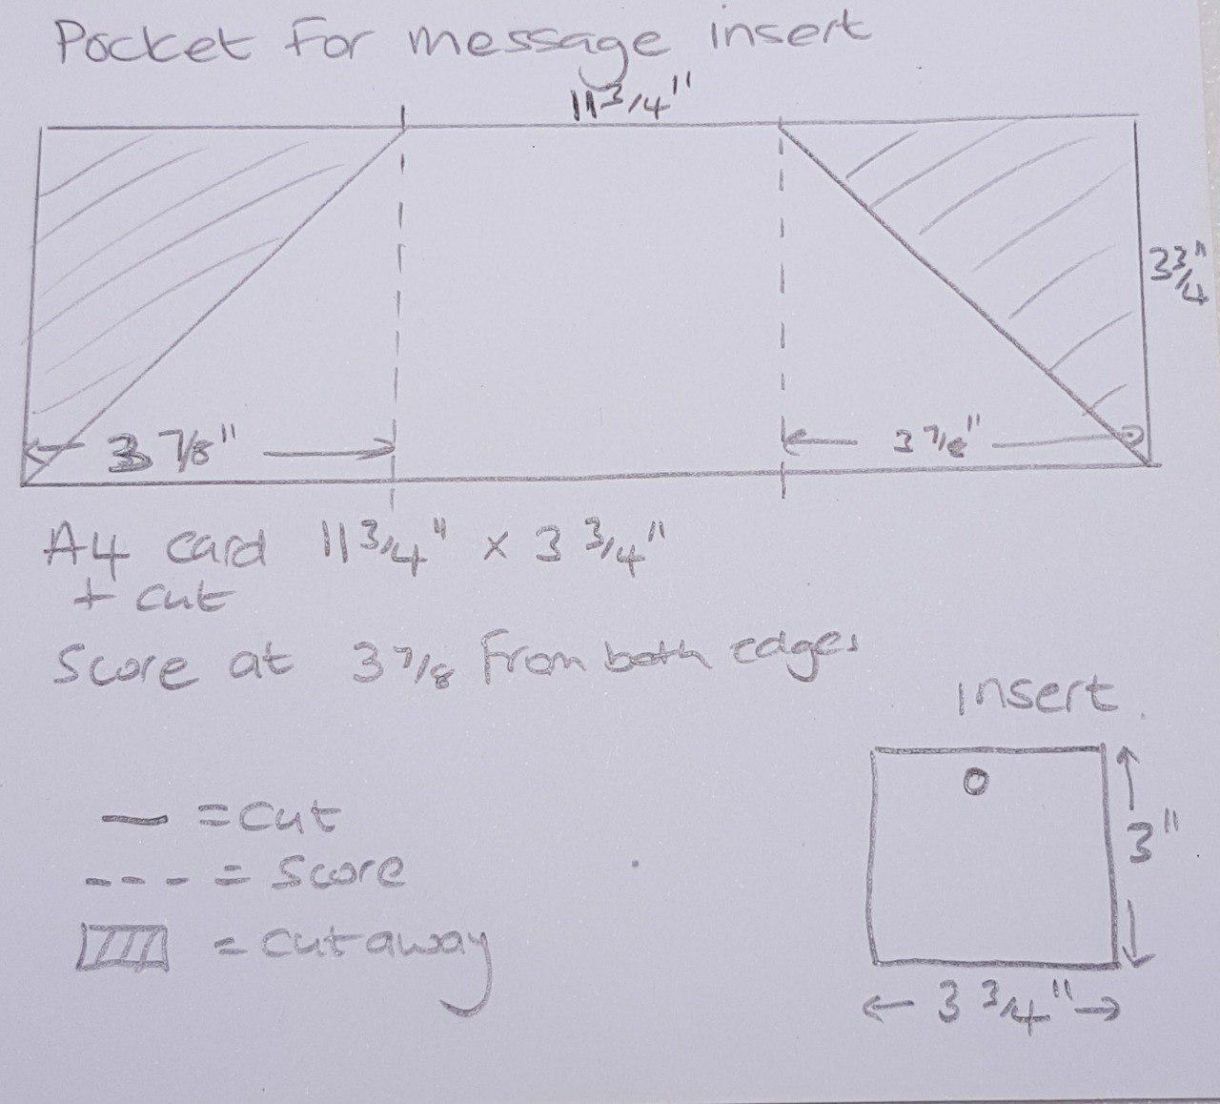 Pocket for message insert
11 3/4"
3 3/4"
3 7/8"
3 7/8"
A4 card 11 3/4" x 3 3/4"
+ cut
Score at 3 7/8 from both edges
insert.
— = cut
--- = score
= cut away
3"
3 3/4"